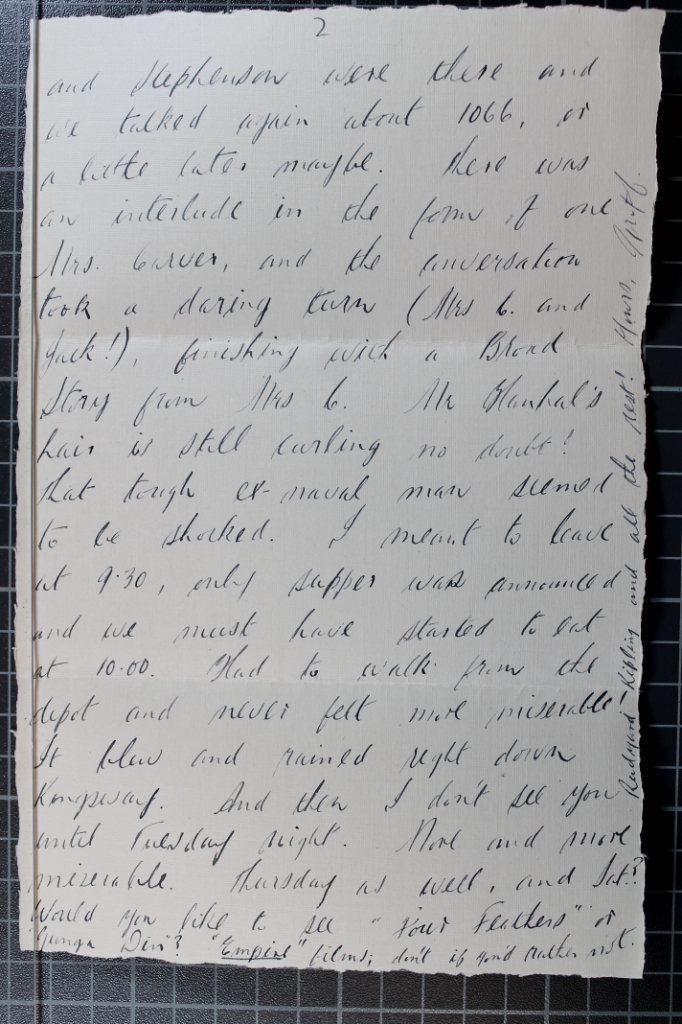 2
and Stephenson were there and
we talked again about 1066, or
a little later maybe. There was
an interlude in the form of one
Mrs. Carver, and the conversation
took a daring turn (Mrs C. and
Jack!), finishing with a Broad
Story from Mrs C. Mr
hair is still curling no doubt!
That tough ex-naval man seemed
to be shocked. I meant to leave
at 9.30, only supper was announced
and we must have started to eat
at 10.00. Had to walk from the
depot and never felt more miserable
It blew and rained right down
Kingsway. And then I don't see you
until Tuesday night. More and more
miserable. Thursday as well, and Sat??
Would you like to see "Four Feathers" or
Gunga Din"? "Empire" films; don't if you'd rather not.
Rudyard Kipling and all the rest! Yours,